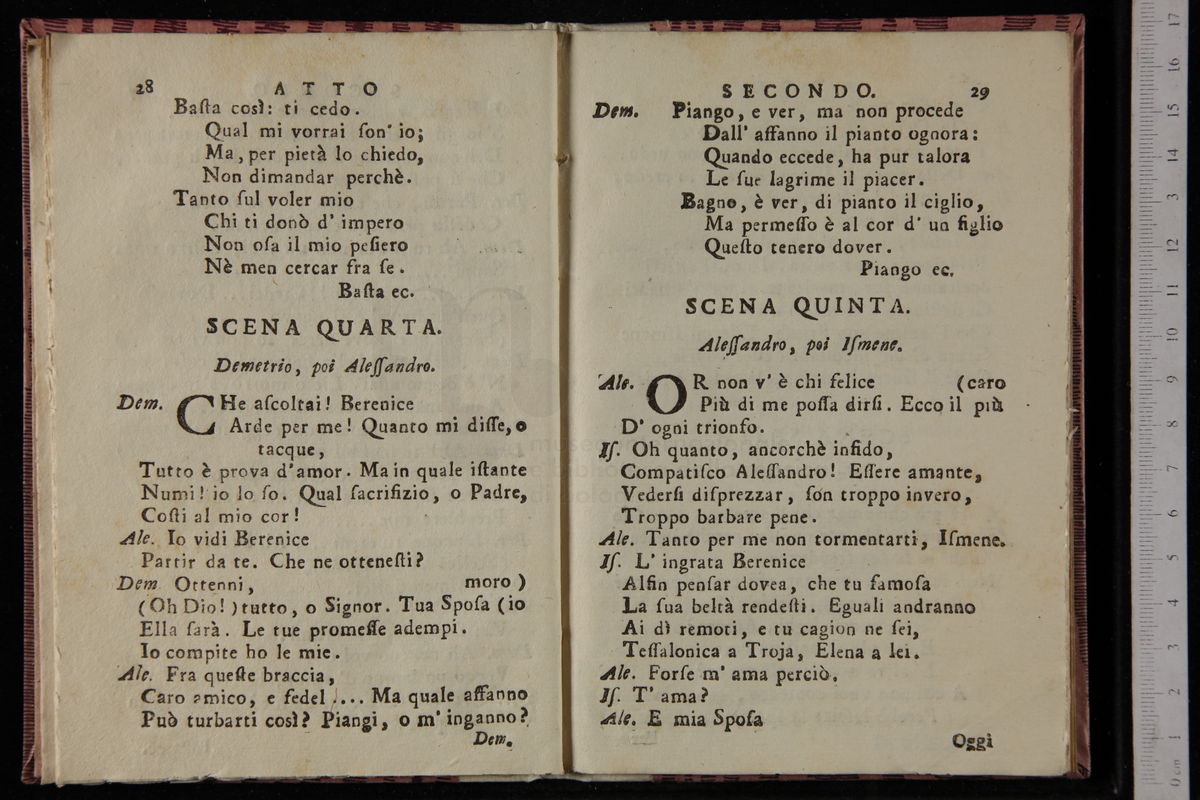 28 ATTO
Baſta così: ti cedo.
Qual mi vorrai ſon' io;
Ma, per pietà lo chiedo,
Non dimandar perchè.
Tanto ſul voler mio
Chi ti donò d' impero
Non oſa il mio peſiero
Nè men cercar fra ſe.
Baſta ec.
SCENA QUARTA.
Demetrio, poi Aleſſandro.
Dem. CHe aſcoltai! Berenice
Arde per me! Quanto mi diſſe, o
tacque,
Tutto è prova d'amor. Ma in quale iſtante
Numi! io lo ſo. Qual ſacrifizio, o Padre,
Coſti al mio cor!
Ale. Io vidi Berenice
Partir da te. Che ne otteneſti?
Dem Ottenni, moro)
(Oh Dio!) tutto, o Signor. Tua Spoſa (io
Ella ſarà. Le tue promeſſe adempi.
Io compite ho le mie.
Ale. Fra queſte braccia,
Caro amico, e fedel .... Ma quale affanno
Può turbarti così? Piangi, o m' inganno?
Dem.
SECONDO. 29
Dem. Piango, e ver, ma non procede
Dall' affanno il pianto ognora:
Quando eccede, ha pur talora
Le ſue lagrime il piacer.
Bagno, è ver, di pianto il ciglio,
Ma permeſſo è al cor d' un figlio
Queſto tenero dover.
Piango ec.
SCENA QUINTA.
Aleſſandro, poi Iſmene.
Ale. OR non v' è chi felice (caro
Più di me poſſa dirſi. Ecco il più
D' ogni trionfo.
Iſ. Oh quanto, ancorchè infido,
Compatiſco Aleſſandro! Eſſere amante,
Vederſi diſprezzar, ſon troppo invero,
Troppo barbare pene.
Ale. Tanto per me non tormentarti, Iſmene.
Iſ. L' ingrata Berenice
Alfin penſar dovea, che tu famoſa
La ſua beltà rendeſti. Eguali andranno
Ai dì remoti, e tu cagion ne ſei,
Teſſalonica a Troja, Elena a lei.
Ale. Forſe m' ama perciò.
Iſ. T' ama?
Ale. E mia Spoſa
Oggi